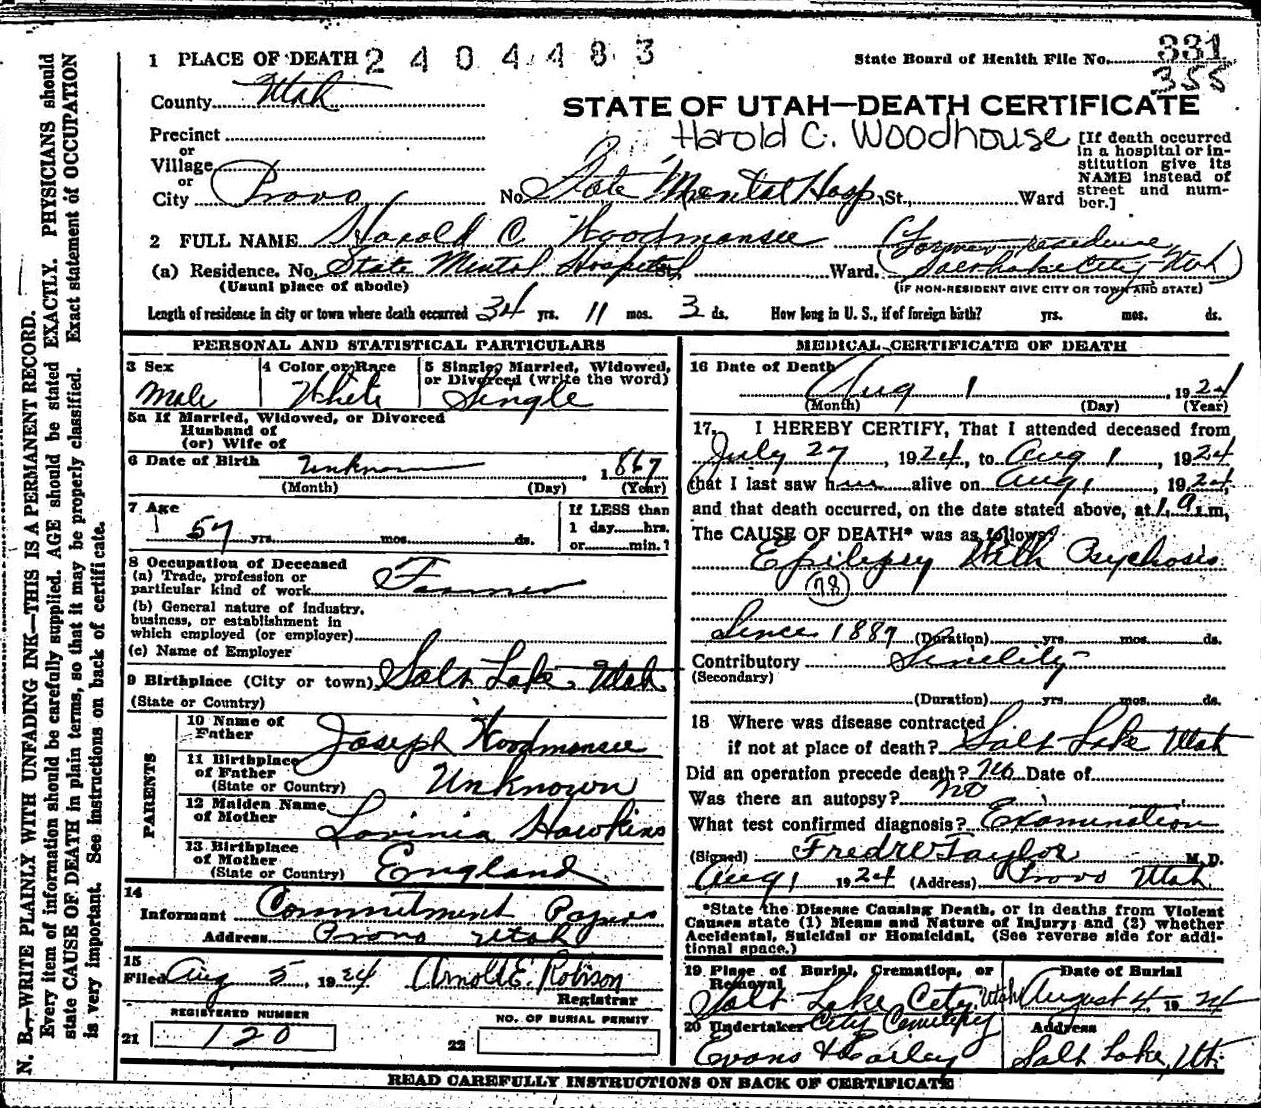 1 PLACE OF DEATH 2404483
State Board of Health File No. 331
355
County Utah
STATE OF UTAH—DEATH CERTIFICATE
Harold C. Woodhouse
Precinct
or
Village
or
City Provo No. State Mental Hosp. St., Ward
[If death occurred in a hospital or in-
stitution give its
NAME instead of
street and num-
ber.]
2 FULL NAME Harold C Woodmansee
(a) Residence. No. State Mental Hospital St. Ward.
(Former residence
Salt Lake City Utah)
(Usual place of abode)
(IF NON-RESIDENT GIVE CITY OR TOWN AND STATE)
Length of residence in city or town where death occurred 34 yrs. 11 mos. 3 ds. How long in U. S., if of foreign birth? yrs. mos. ds.
PERSONAL AND STATISTICAL PARTICULARS
3 Sex
Male
4 Color or Race
White
5 Single, Married, Widowed,
or Divorced (write the word)
Single
5a If Married, Widowed, or Divorced
Husband of
(or) Wife of
6 Date of Birth Unknown, 1867
(Month) (Day) (Year)
7 Age
57 yrs. mos. ds.
If LESS than
1 day......hrs.
or......min.?
8 Occupation of Deceased
(a) Trade, profession or
particular kind of work Farmer
(b) General nature of industry,
business, or establishment in
which employed (or employer)
(c) Name of Employer
9 Birthplace (City or town) Salt Lake Utah
(State or Country)
PARENTS
10 Name of
Father Joseph Woodmansee
11 Birthplace
of Father
(State or Country) Unknown
12 Maiden Name
of Mother Lovinia Hawkins
13 Birthplace
of Mother
(State or Country) England
14
Informant Commitment Papers
Address Provo Utah
15
Filed Aug 5, 1924 Arnold E. Robison
Registrar
REGISTERED NUMBER
21 120
NO. OF BURIAL PERMIT
22
MEDICAL CERTIFICATE OF DEATH
16 Date of Death
Aug 1, 1924
(Month) (Day) (Year)
17. I HEREBY CERTIFY, That I attended deceased from
July 27, 1924, to Aug 1, 1924
that I last saw h alive on Aug 1, 1924,
and that death occurred, on the date stated above, at m,
The CAUSE OF DEATH* was as follows:
Epilepsy With Psychosis
78
Since 1889 (Duration) yrs. mos. ds.
Contributory Sinelity
(Secondary)
(Duration) yrs. mos. ds.
18 Where was disease contracted
if not at place of death? Salt Lake Utah
Did an operation precede death? No Date of
Was there an autopsy? No
What test confirmed diagnosis? Examination
(Signed) Fred W Taylor M. D.
Aug 1 1924 (Address) Provo Utah
*State the Disease Causing Death, or in deaths from Violent
Causes state (1) Means and Nature of Injury; and (2) whether
Accidental, Suicidal or Homicidal. (See reverse side for addi-
tional space.)
19 Place of Burial, Cremation, or
Removal
Salt Lake City, Utah
City Cemetery
Date of Burial
August 4, 1924
20 Undertaker
Evans & Earley
Address
Salt Lake, Ut.
READ CAREFULLY INSTRUCTIONS ON BACK OF CERTIFICATE
N. B.—WRITE PLAINLY WITH UNFADING INK—THIS IS A PERMANENT RECORD.
Every item of information should be carefully supplied. AGE should be stated EXACTLY. PHYSICIANS should
state CAUSE OF DEATH in plain terms, so that it may be properly classified. Exact statement of OCCUPATION
is very important. See instructions on back of certificate.